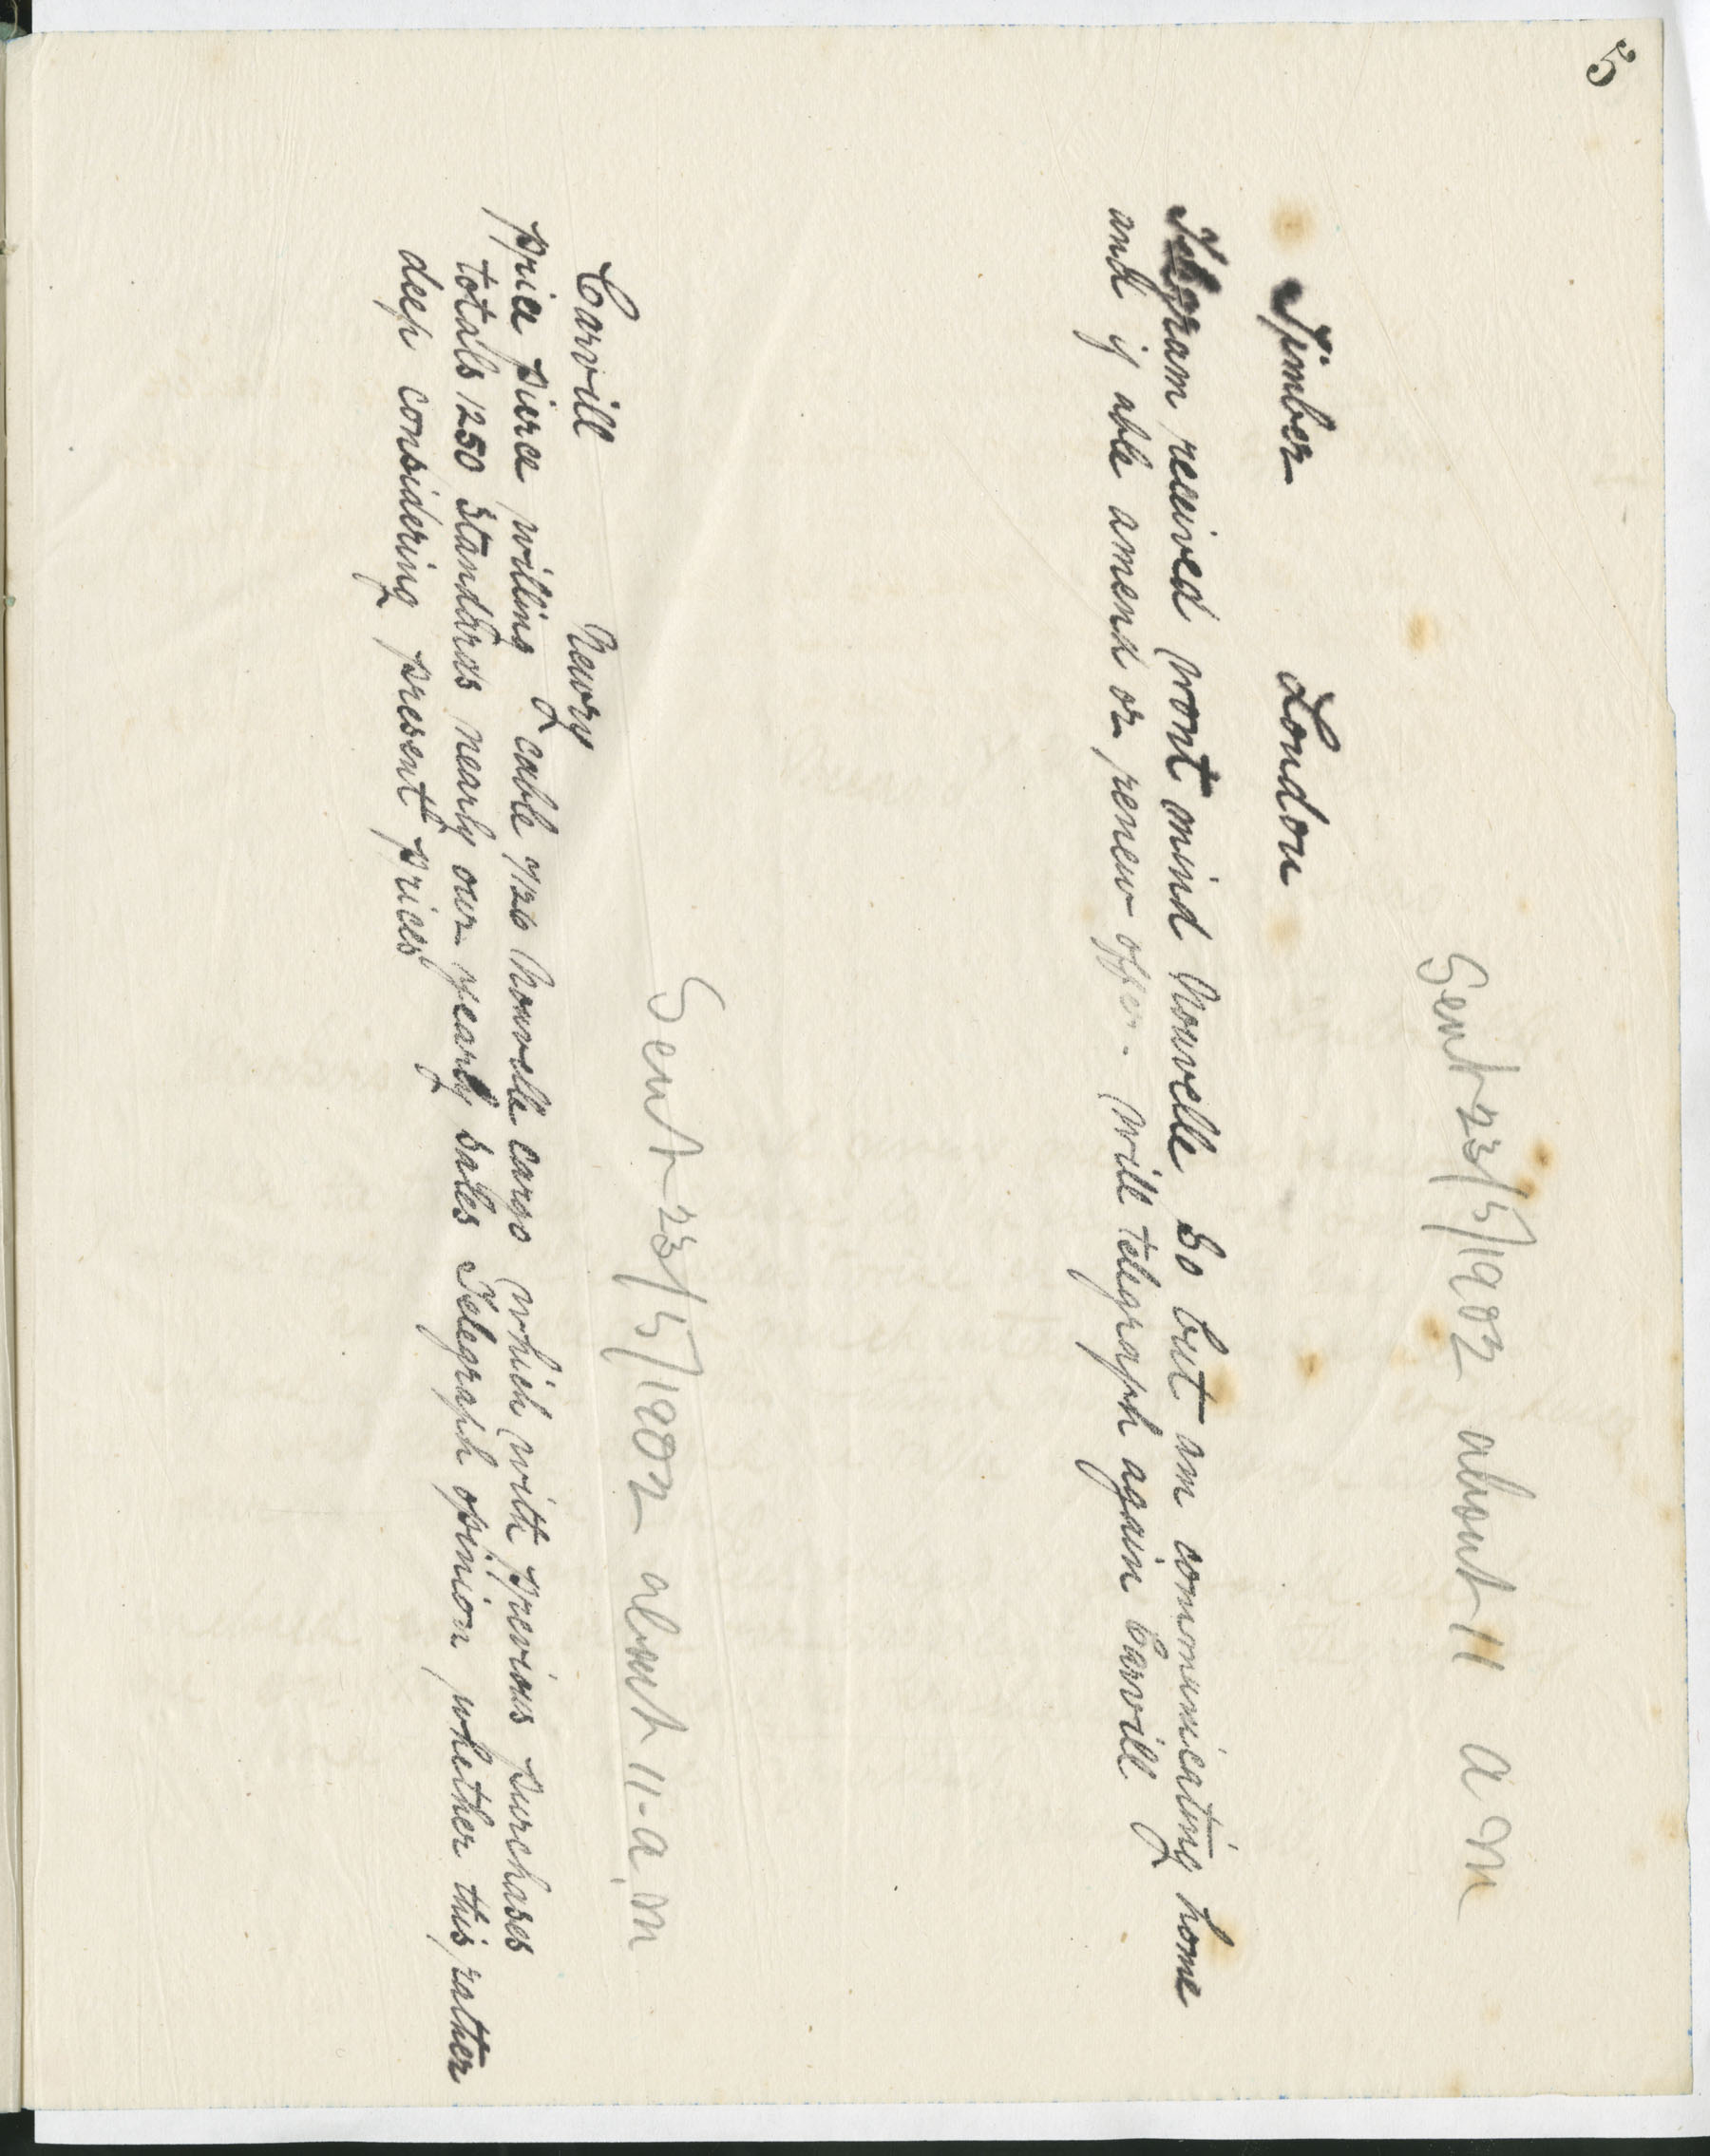 5
Sent 23/5/1902 about 11 a m
Timber London
Telegram received wont mind Nouvelle so but am communicating home
and if able amend or renew offer. Will telegraph again Carvill
Sent 23/5/1902 about 11-a.m
Carvill Newry
Price pierce willing cable 7/26 Nouvelle cargo which with previous purchases
totals 1250 standards nearly our yearly sales Telegraph opinion whether this rather
deep considering present prices